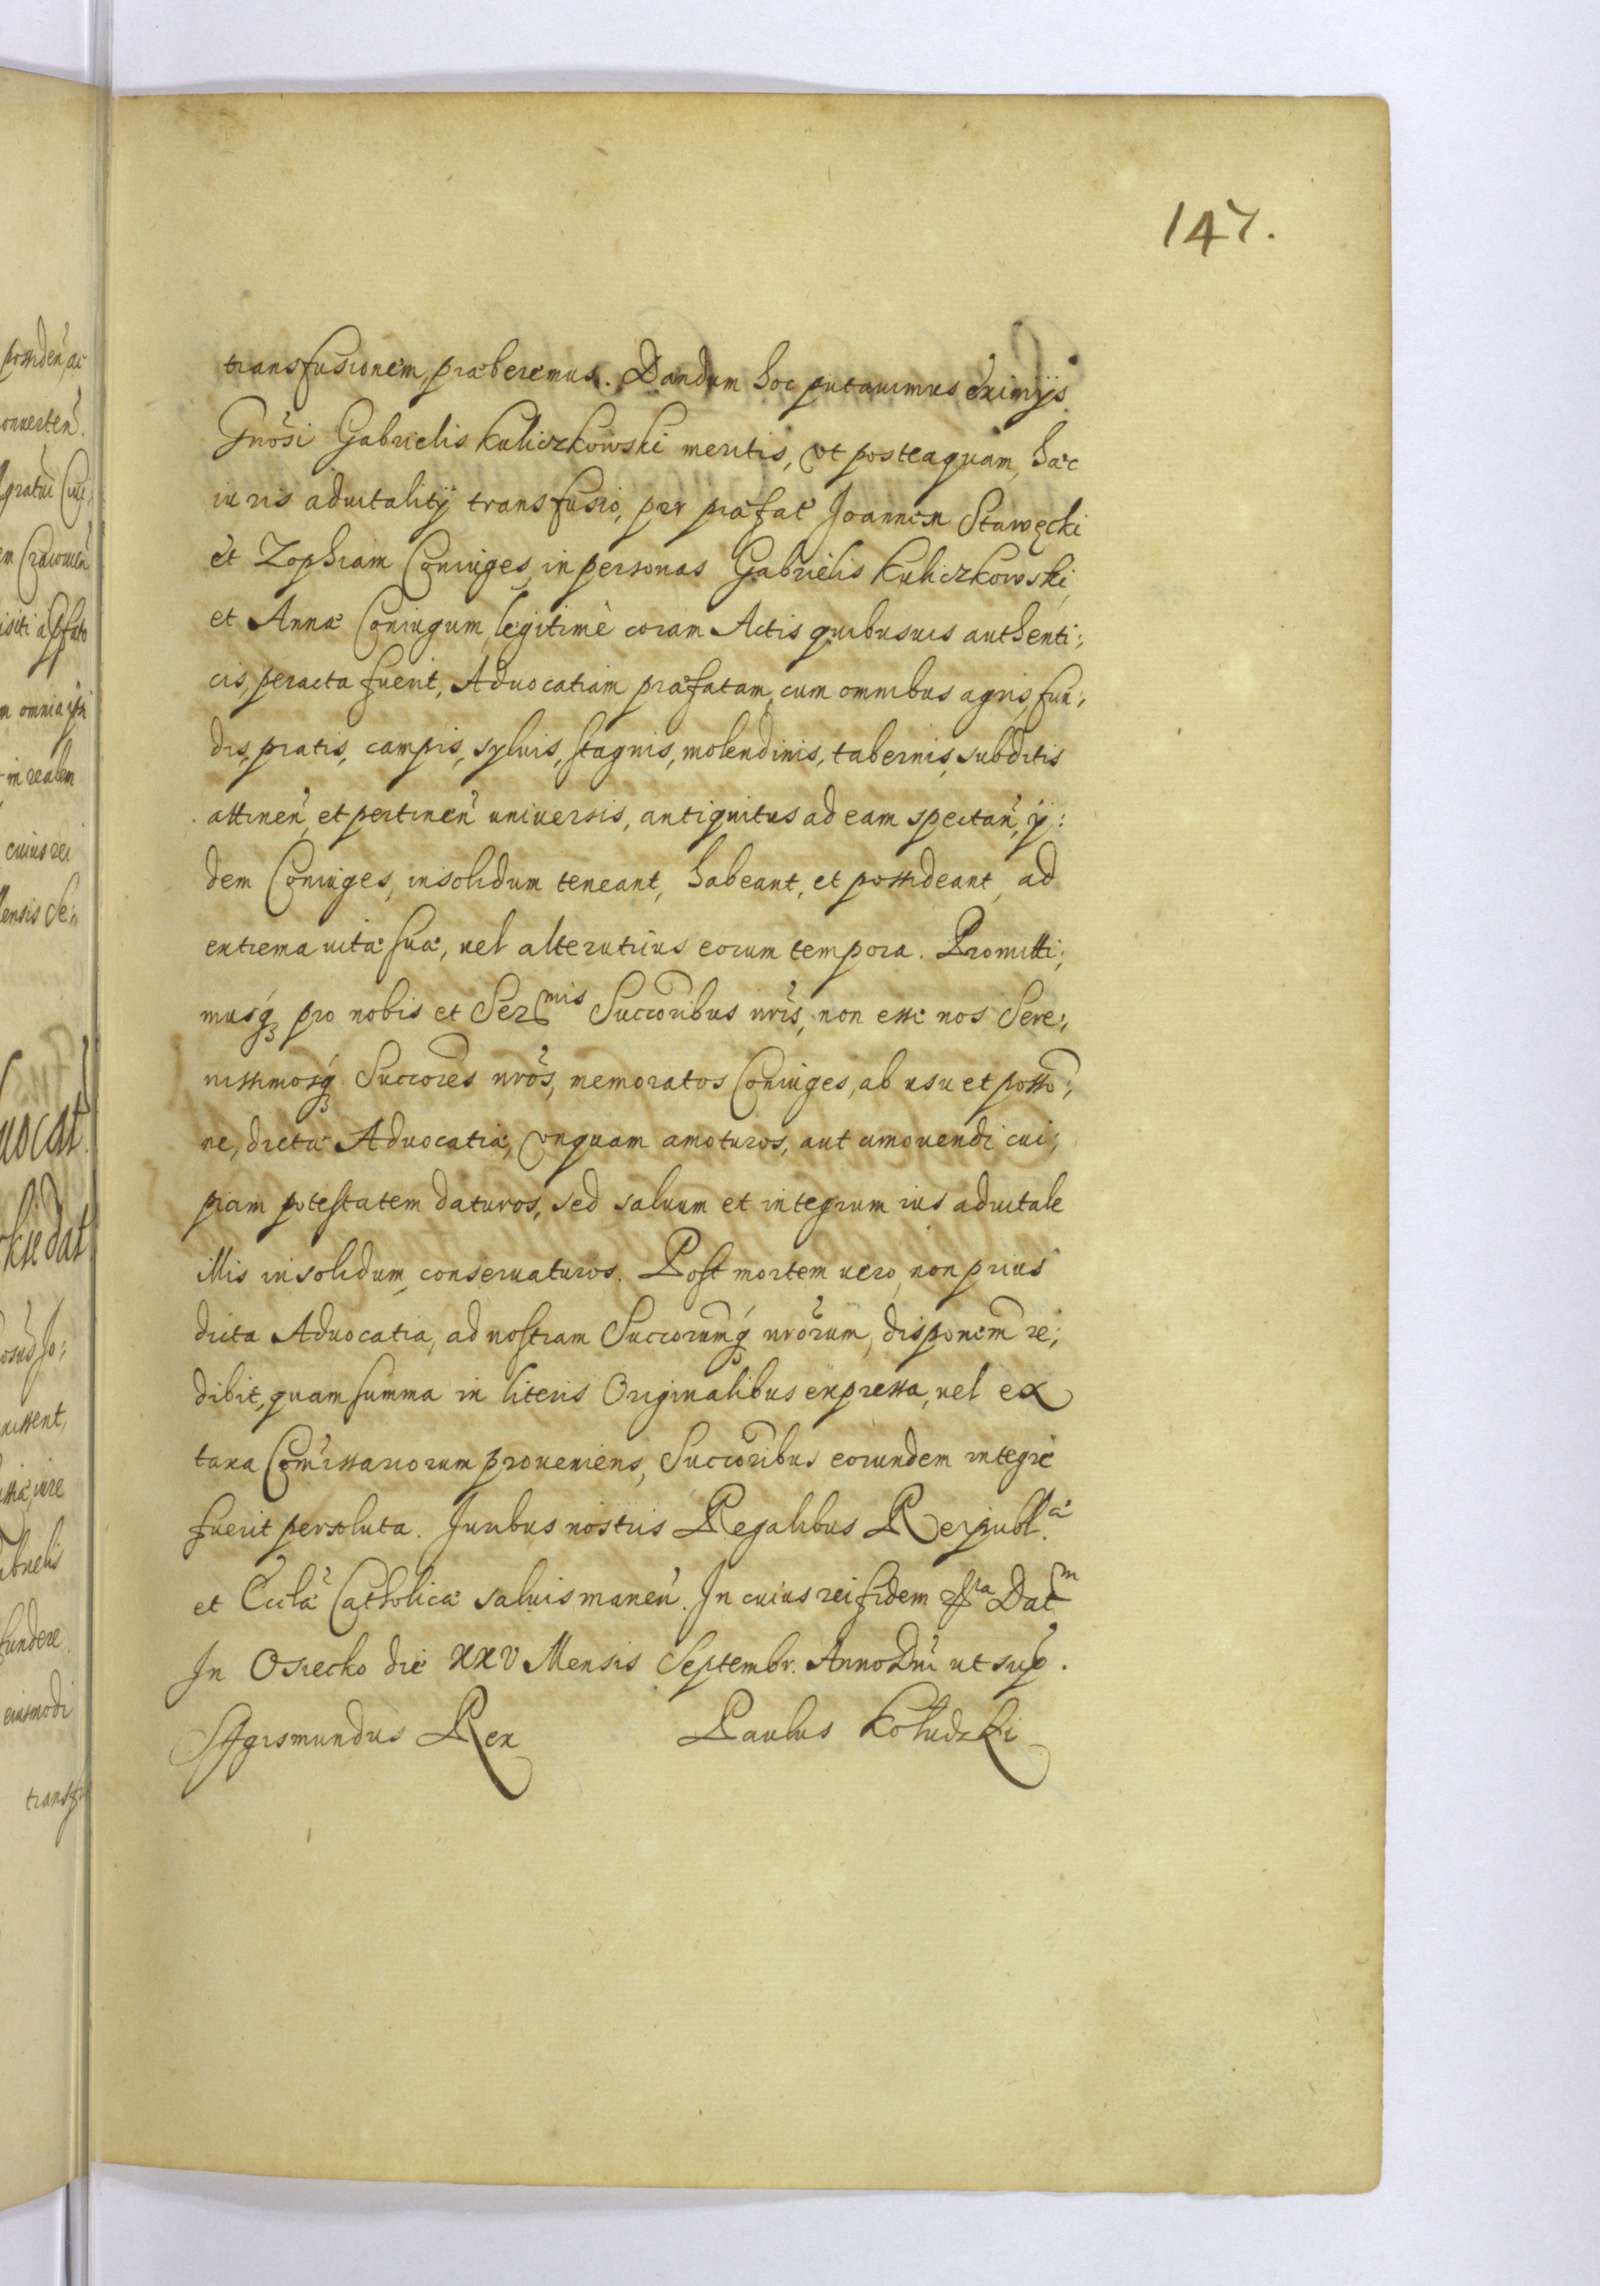 147.
transfusionem, præberemus. Dandum hoc putauimus eximijs
Gnosi Gabrielis Kuliczkowski meritis, vt posteaquam, hæc
iuris aduitalitÿ transfusio, per præfat Joannem Stawęcki
et Zophiam Coniuges, in personas Gabrielis Kuliczkowski,
et Annæ Coniugum, legitimè coram Actis quibusuis authenti;
cis, peracta fuerit, Aduocatiam præfatam, cum omnibus agris, fun;
dis, pratis, campis, syluis, stagnis, molendinis, tabernis, subditis
attinen, et pertinen uniuersis, antiquitus ad eam spectan, ij:
dem Coniuges, insolidum teneant, habeant, et possideant, ad
extrema uitæ suæ, uel alterutrius eorum tempora. Promitti;
musq3 pro nobis et Ser^mis Succoribus nris, non esse nos Sere;
nissimosq3 Succores nros, memoratos Coniuges, ab usu et posso;
ne, dictæ Aduocatiæ, vnquam amoturos, aut amouendi cui;
piam potestatem daturos, sed saluum et integrum ius aduitale
illis insolidum, conseruaturos. Post mortem uero, non prius
dicta Aduocatia, ad nostram Succorumq3 nrorum, disponem re;
dibit, quam summa in literis Originalibus expressa, uel ex
taxa Comissariorum proueniens, Succoribus eorundem integrè
fuerit persoluta. Juribus nostris Regalibus Reipubl.æ
et Ecclæ Catholicæ saluis manen. In cuius rei fidem &ra Datm
In Osiecko die XXV Mensis Septembr. Anno Dni ut sup.
Sigismundus Rex Paulus Kołudzki